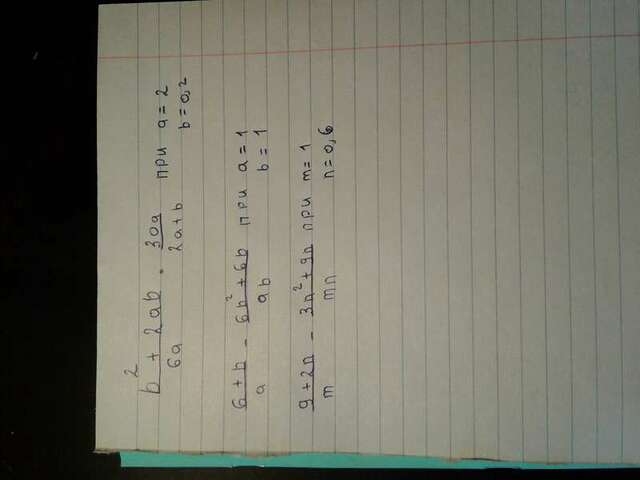 b² + 2ab / 6a · 30a / 2a+b при a=2
b=0,2
6+b / a - 6b²+6b / ab при a=1
b=1
9+2n / m - 3n²+9n / mn при m=1
n=0,6